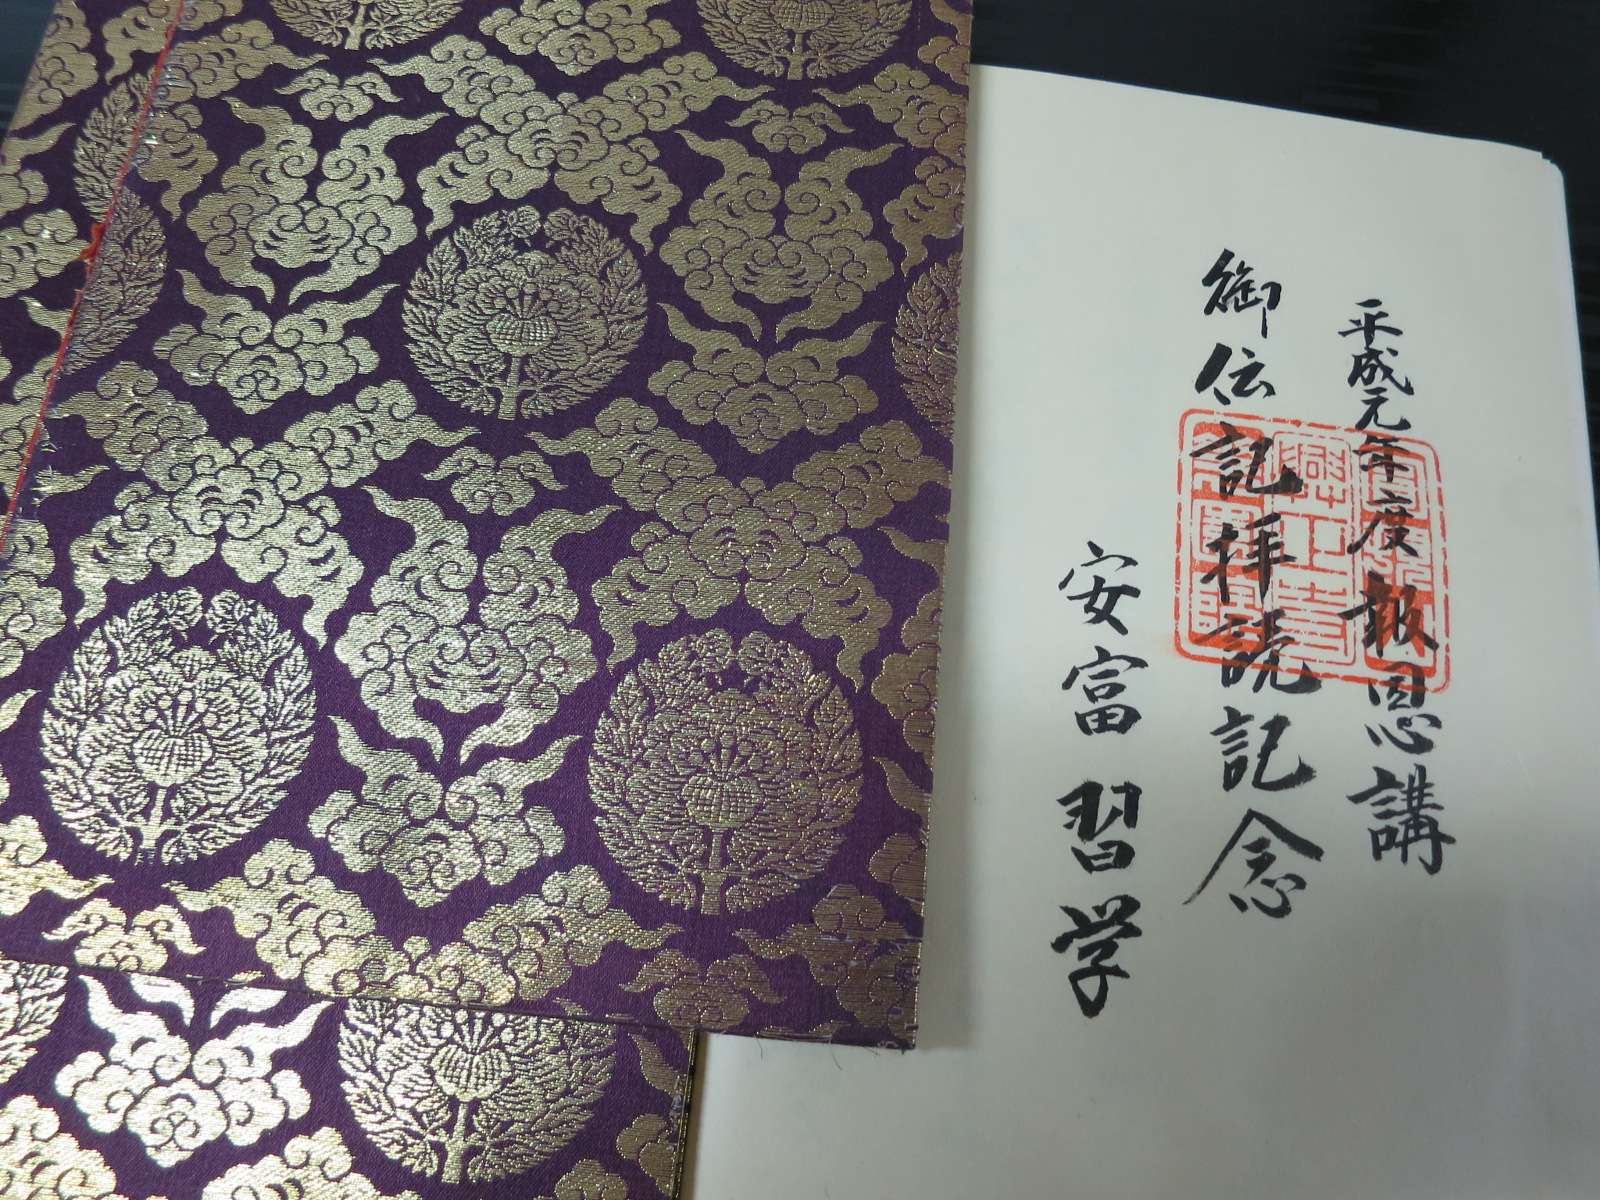 平成元年度報恩講
御伝記拝読記念
安富習学